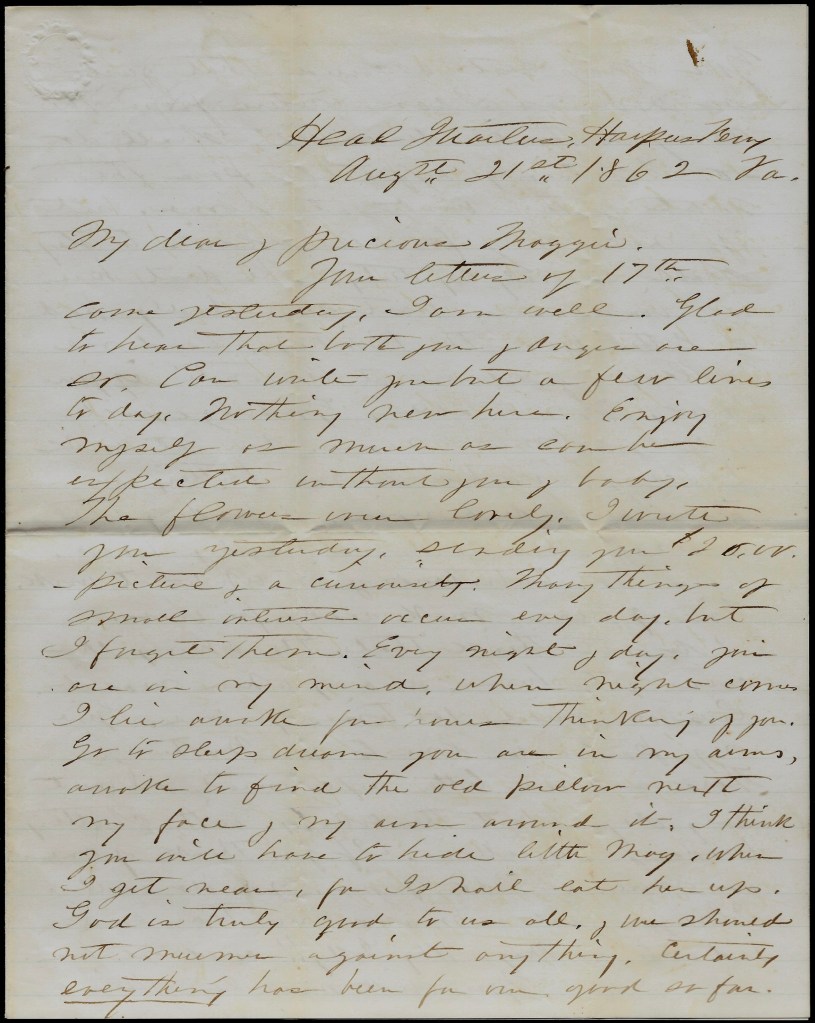 Head Quarters, Harpers Ferry
Augst 21st 1862 Va.
My dear & precious Maggie.
Your letter of 17th
came yesterday. I am well. Glad
to hear that both you & are
so. Can write you but a few lines
to day. Nothing new here. Enjoy
myself as much as can be
expected without you & baby.
The flowers were lovely. I wrote
you yesterday, sending you $20.00.
- picture & a curiosity. Many things of
small interest occur every day, but
I forget them. Every night & day, you
are in my mind, when night comes
I lie awake for hours thinking of you.
Go to sleep dream you are in my arms,
awake to find the old pillow next
my face & my arm around it. I think
you will have to hide little Mag, when
I get near, for I shall eat her up.
God is truly good to us all, & we should
not murmur against anything. Certainly
everything has been for our good so far.